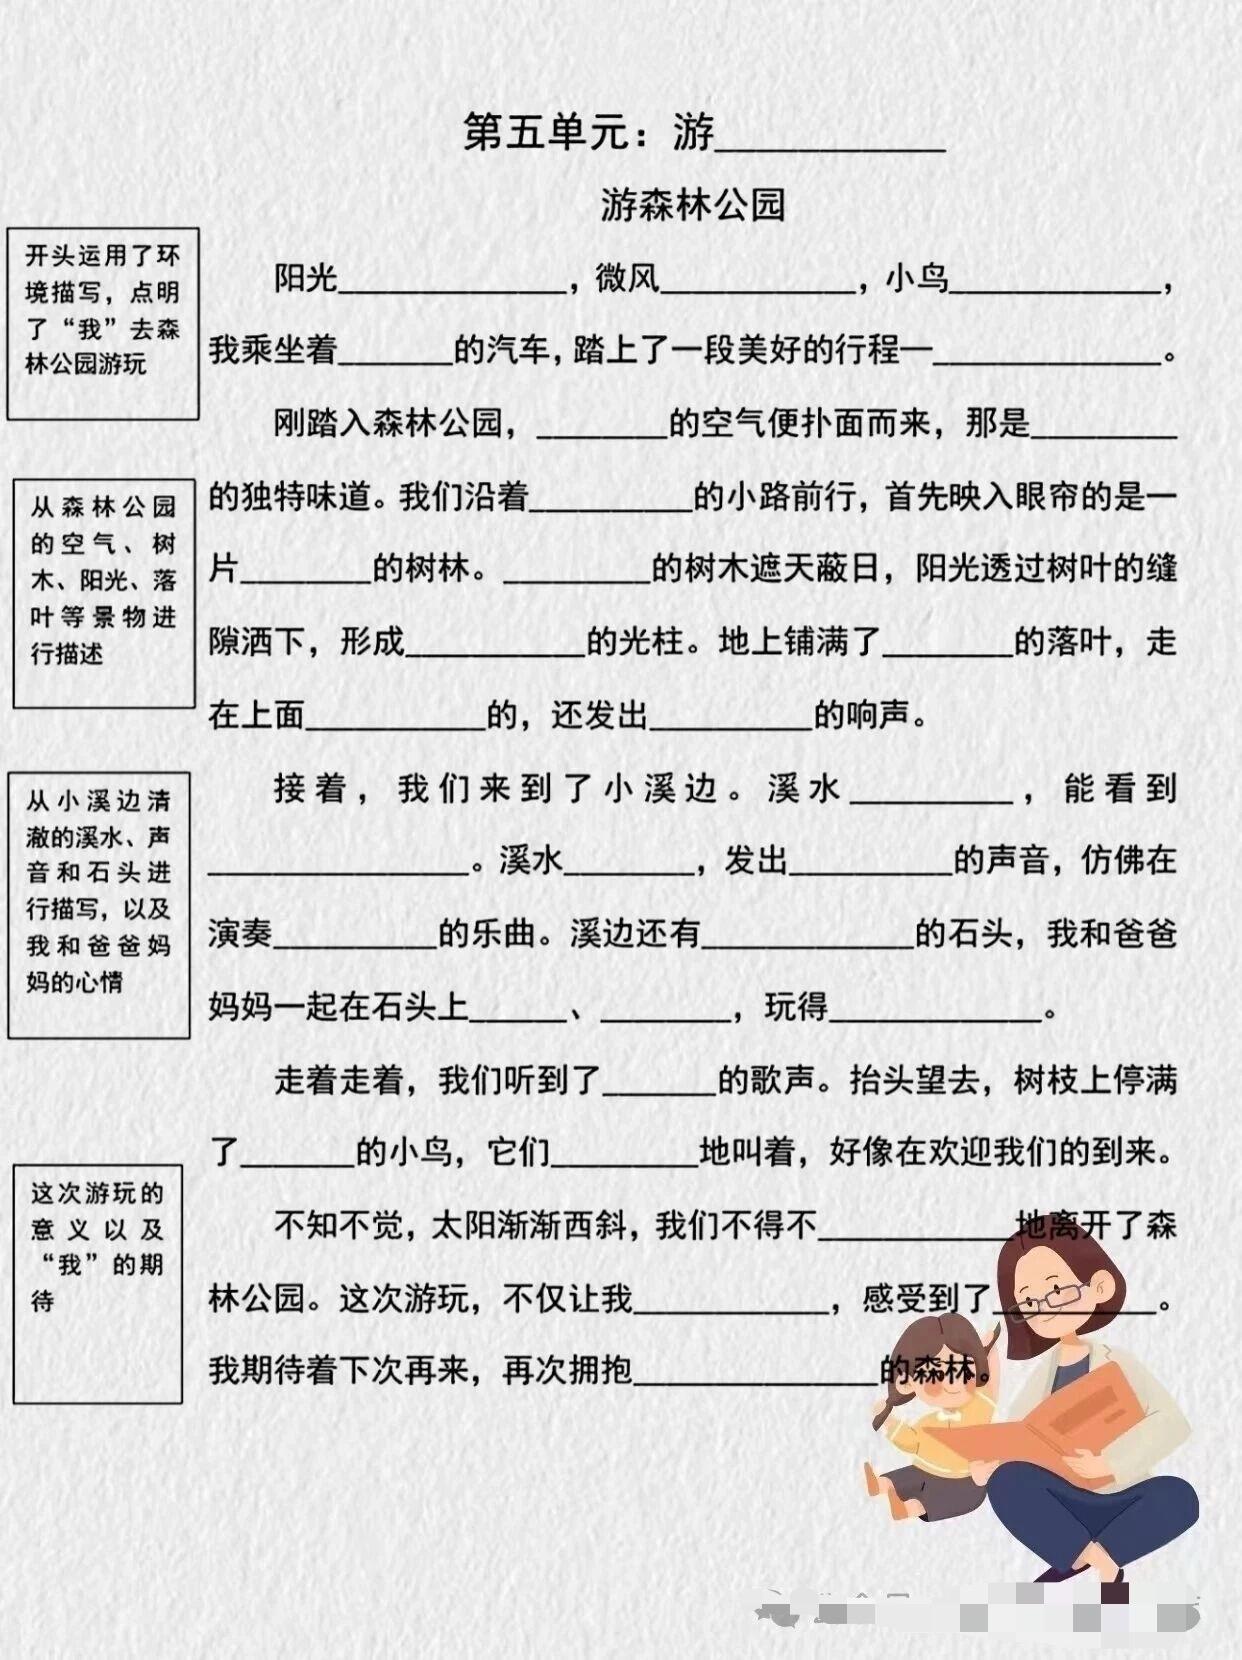 第五单元：游___________
游森林公园
开头运用了环
境描写，点明
了“我”去森
林公园游玩
阳光______________，微风____________，小鸟_____________，
我乘坐着_______的汽车，踏上了一段美好的行程—______________。
刚踏入森林公园，________的空气便扑面而来，那是_________
从森林公园
的空气、树
木、阳光、落
叶等景物进
行描述
的独特味道。我们沿着__________的小路前行，首先映入眼帘的是一
片________的树林。_________的树木遮天蔽日，阳光透过树叶的缝
隙洒下，形成___________的光柱。地上铺满了________的落叶，走
在上面___________的，还发出__________的响声。
从小溪边清
澈的溪水、声
音和石头进
行描写，以及
我和爸爸妈
妈的心情
接着，我们来到了小溪边。溪水__________，能看到
________________。溪水________，发出__________的声音，仿佛在
演奏__________的乐曲。溪边还有_____________的石头，我和爸爸
妈妈一起在石头上______、________，玩得_____________。
走着走着，我们听到了_______的歌声。抬头望去，树枝上停满
了_______的小鸟，它们_________地叫着，好像在欢迎我们的到来。
这次游玩的
意义以及
“我”的期
待
不知不觉，太阳渐渐西斜，我们不得不____________地离开了森
林公园。这次游玩，不仅让我____________，感受到了__________。
我期待着下次再来，再次拥抱_______________的森林。